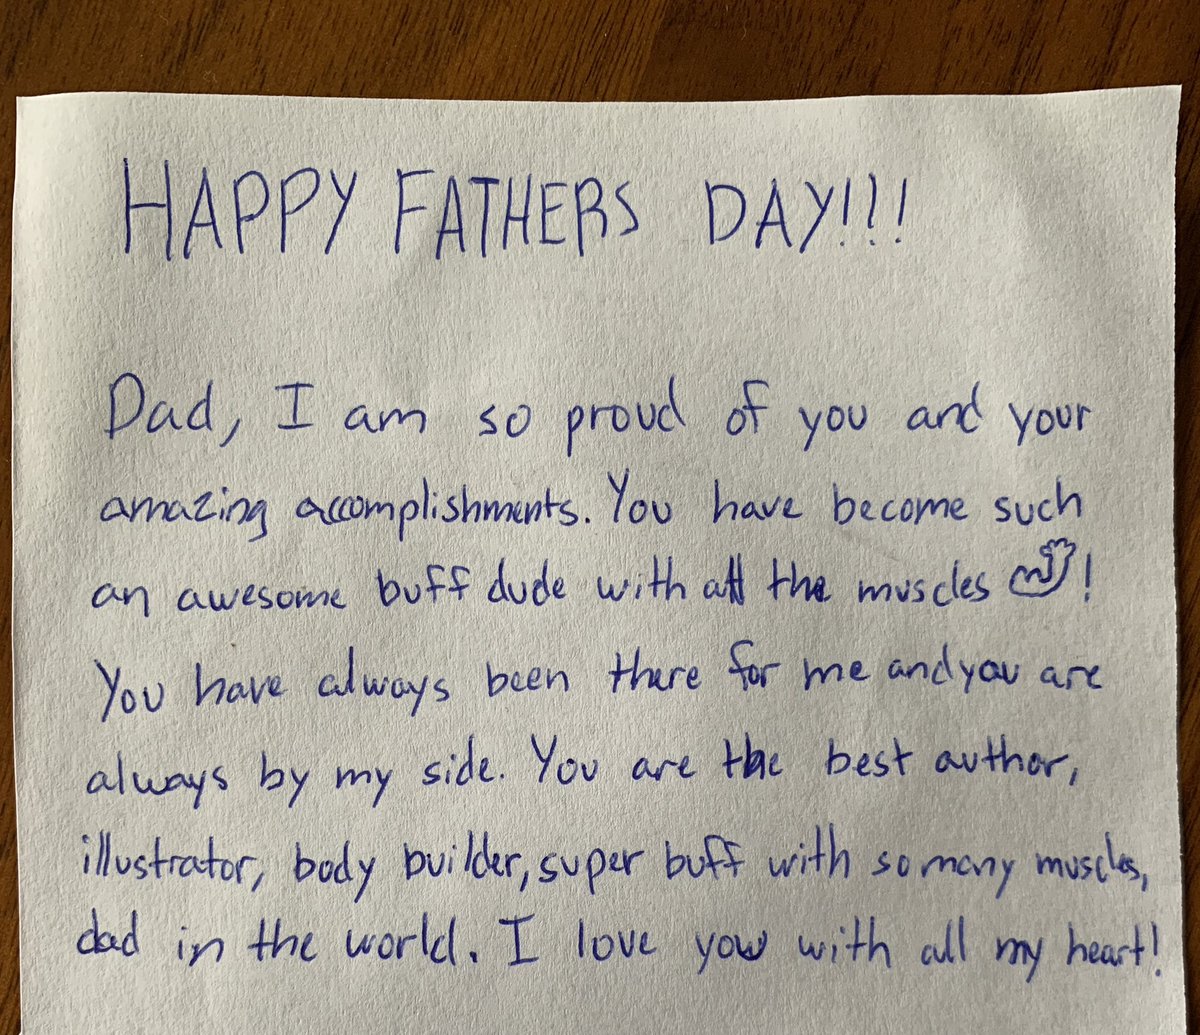 HAPPY FATHERS DAY!!!
Dad, I am so proud of you and your
amazing accomplishments. You have become such
an awesome buff dude with all the muscles 💪!
You have always been there for me and you are
always by my side. You are the best author,
illustrator, body builder, super buff with so many muscles,
dad in the world. I love you with all my heart!